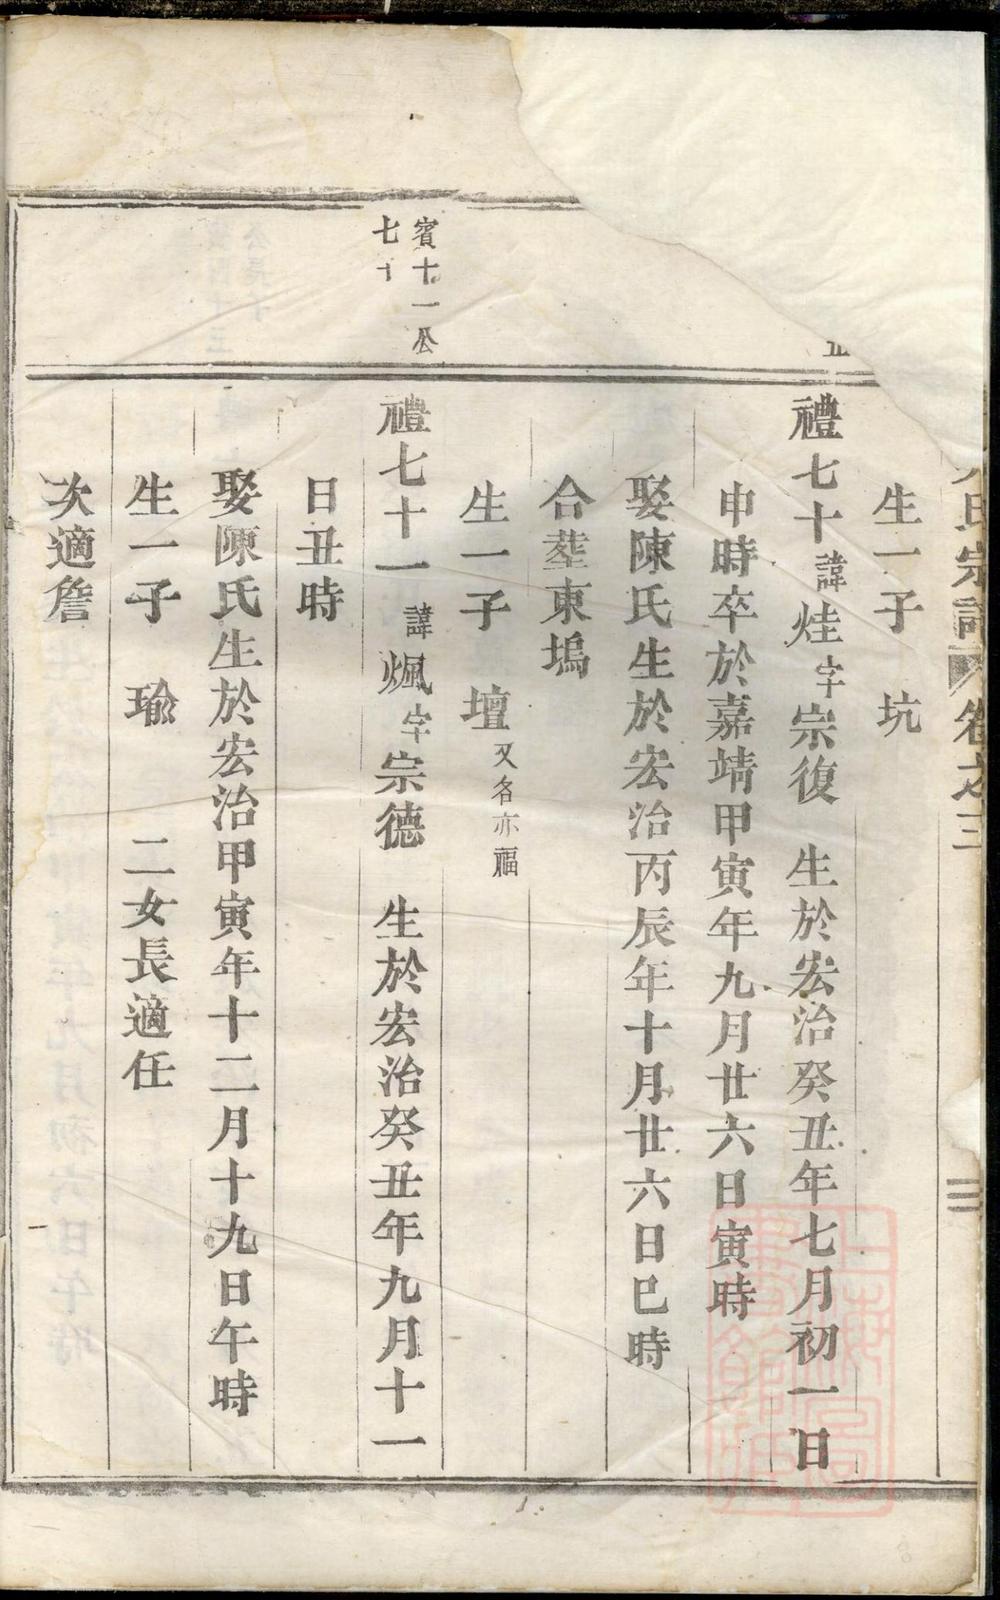 氏宗譜 卷之三
生一子 坑
禮七十諱烓字宗復 生於宏治癸丑年七月初一日
申時卒於嘉靖甲寅年九月廿六日寅時
娶陳氏生於宏治丙辰年十月廿六日巳時
合塟東塢
生一子 壇又名亦福
賓十一公
七十
禮七十一諱㷟字宗德 生於宏治癸丑年九月十一
日丑時
娶陳氏生於宏治甲寅年十二月十九日午時
生一子 瑜 二女長適任
次適詹